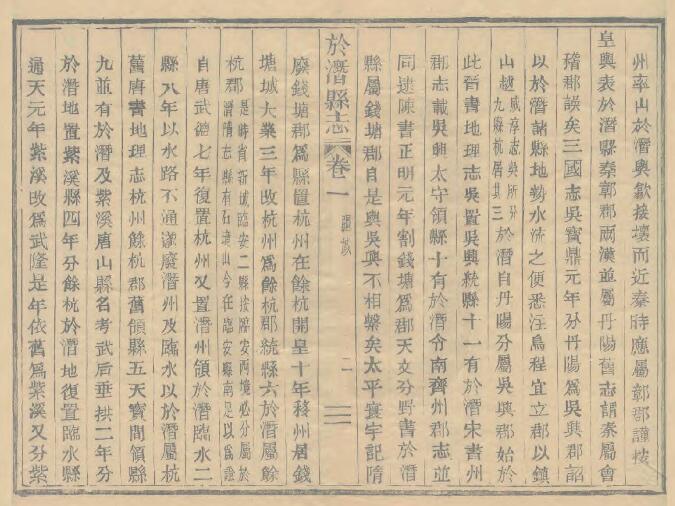 州率山於潛與歙接壤而近秦時應屬鄣郡謹按
皇輿表於潛縣秦鄣郡兩漢並屬丹陽舊志謂秦屬會
稽郡誤矣三國志吳寶鼎元年分丹陽爲吳興郡詔
以於潛諸縣地勢水流之便悉注烏程宜立郡以鎮
山越咸淳志吳所分九縣杭居其三於潛自丹陽分屬吳興郡始於
此晉書地理志吳置吳興統縣十一有於潛宋書州
郡志載吳興太守領縣十有於潛令南齊州郡志並
同逮陳書正明元年割錢塘爲郡天文分野書於潛
縣屬錢塘郡自是與吳興不相繫矣太平寰宇記隋
於潛縣志 卷一 疆域 二
廢錢塘郡爲縣置杭州在餘杭開皇十年移州居錢
塘城大業三年改杭州爲餘杭郡統縣六於潛屬餘
杭郡是時省新城臨安二縣按臨安兩境必分屬於潛隋志縣有石鏡山今在臨安縣南足以爲證
自唐武德七年復置杭州又置潛州領於潛臨水二
縣八年以水路不通遂廢潛州及臨水以於潛屬杭
舊唐書地理志杭州餘杭郡舊領縣五天寶間領縣
九並有於潛及紫溪唐山縣名考武后垂拱二年分
於潛地置紫溪縣四年分餘杭於潛地復置臨水縣
通天元年紫溪改爲武隆是年依舊爲紫溪又分紫